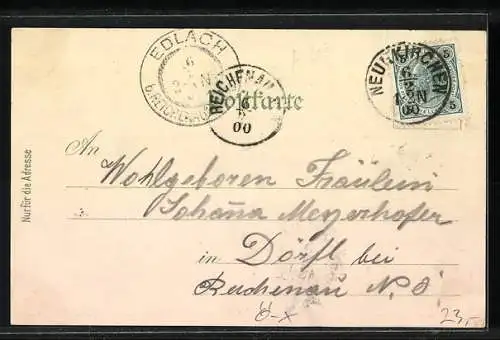 EDLACH
b. REICHENAU
6
REICHENAU
6
00
NEUNKIRCHEN
6
2
00
5
5
Postkarte
An
Wohlgeboren Fräulein
Johanna Meyerhofer
in Dörfl bei
Reichenau N. Ö
Nur für die Adresse
Ö-x
23,-